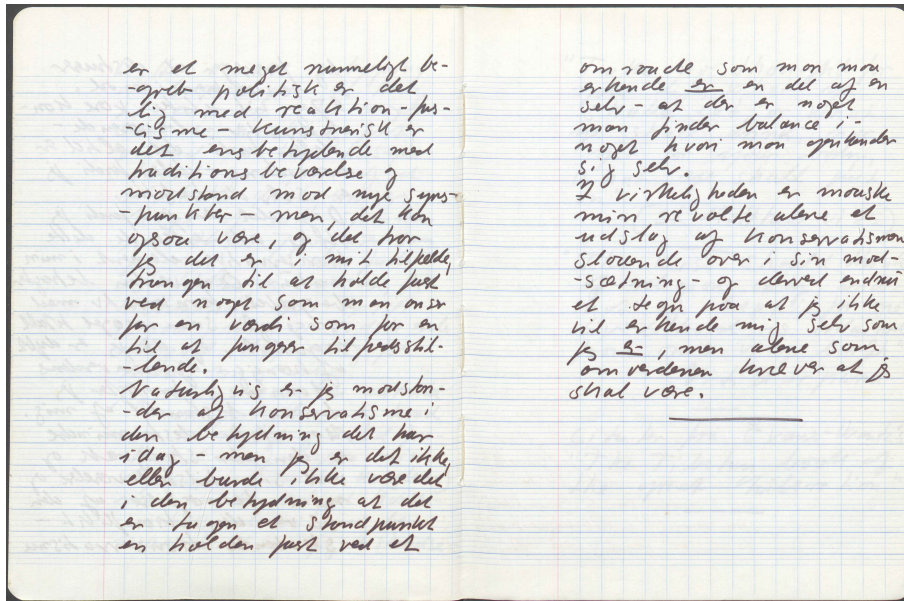 er et meget rummeligt be-
-greb politisk er det
lig med reaktion - fas-
-cisme - kunstnerisk er
det ensbetydende med
traditions bevarelse og
modstand mod nye syns-
-punkter - men, det kan
ogsaa være, og det tror
jeg det er i mit tilfælde,
trangen til at holde fast
ved noget som man anser
for en værdi som for en
til at fungere tilfredsstil-
-lende.
Naturligvis er jeg modstan-
-der af konservatisme i
den betydning det har
idag - men jeg er det ikke,
eller burde ikke være det
i den betydning at det
er tagen et standpunkt
en holden fast ved et
omraade som man maa
erkende er en del af en
selv - at der er noget
man finder balance i -
noget hvori man genkender
sig selv.
I virkeligheden er maaske
min revolte alene et
udslag af konservatismen
slaaende over i sin mod-
-sætning - og derved endnu
et tegn paa at jeg ikke
vil erkende mig selv som
jeg er, men alene som
omverdenen kræver at jeg
skal være.